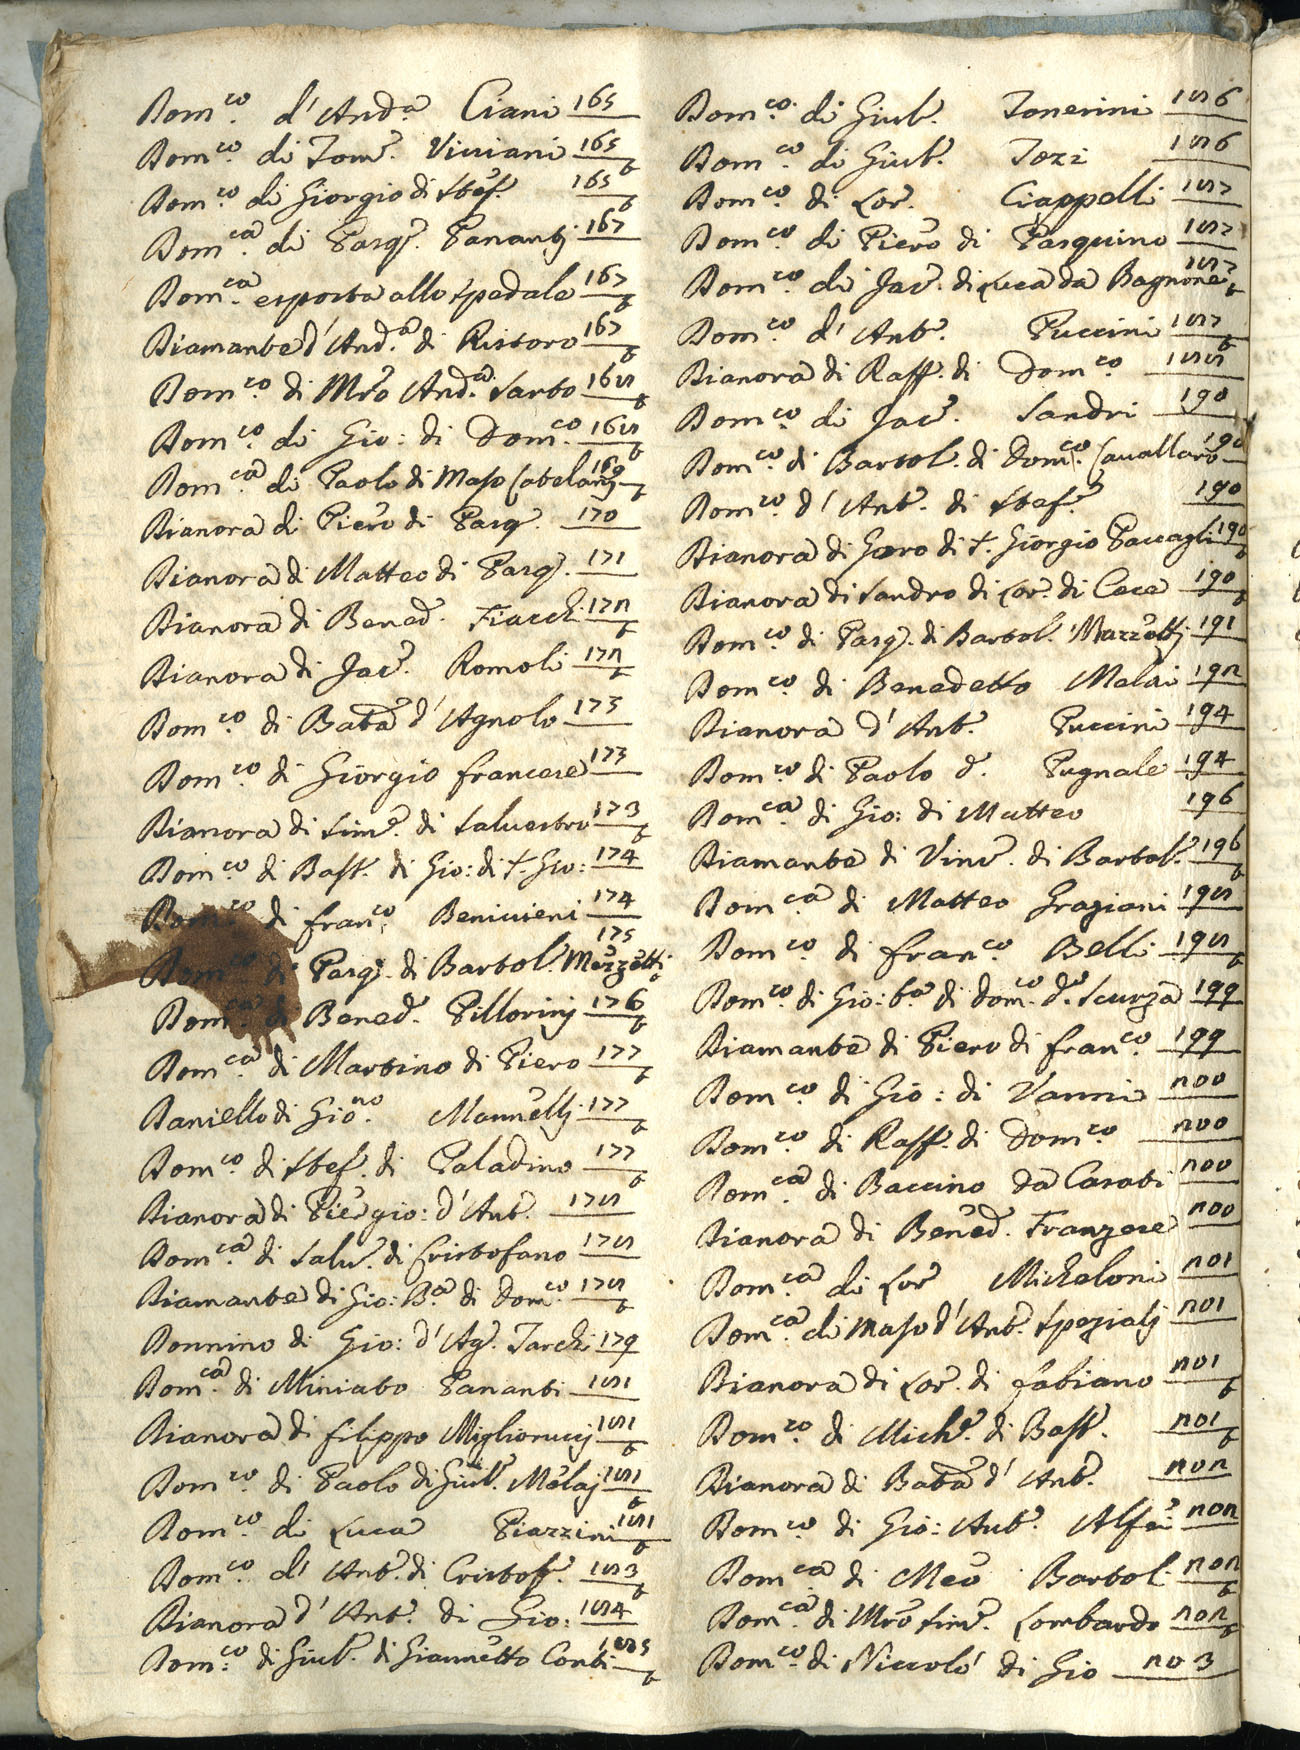 Dom.co d'And.a Ciani 165
Dom.co di Tom.e Viviani 165 t
Dom.co di Giorgio di Stef. 165 t
Dom.ca di Pasq. Pananti 167
Dom.ca esposta allo Spedale 167 t
Diamante d'And.a di Ristoro 167 t
Dom.co di Mro And.a Sarto 168 t
Dom.co di Gio: di Dom.co 168 t
Dom.ca di Paolo di Maso Catelani 169 t
Dianora di Piero di Pasq. 170
Dianora di Matteo di Pasq. 171
Dianora di Bened. Fiacchi 172 t
Dianora di Jac. Romoli 172 t
Dom.co di Bab.a d'Agnolo 173
Dom.co di Giorgio francese 173
Dianora di Sim.e di Salvestro 173 t
Dom.co di Bast. di Gio: di S. Gio: 174
Dom.co di fran.co Benivieni 174
Dom.co di Pasq. di Bartol. Mazzetti 175 t
Dom.ca di Bened. Pillorinj 176 t
Dom.ca di Martino di Piero 177 t
Daniello di Gio.no Mannelli 177 t
Dom.co di Stef. di Paladino 177 t
Dianora di Piergio: d'Ant. 178
Dom.ca di Salv. di Cristofano 178
Diamante di Gio: B.a di Dom.co 178 t
Donnino di Gio: d'Ag. Tarchi 179
Dom.ca di Miniato Pananti 181
Dianora di filippo Migliorucj 181 t
Dom.co di Paolo di Giul. Melaj 181 t
Dom.co di Luca Piazzini 181 t
Dom.co d'Ant. di Cristof. 183 t
Dianora d'Ant. di Gio: 184
Dom.co di Giul. di Giannetto Conti 185 t
Dom.co di Giul. Tonerini 186
Dom.co di Giul. Tozi 186
Dom.co di Lor. Ciappelli 187
Dom.co di Piero di Pasquino 187
Dom.co di Jac. di Luca da Bagnone 187 t
Dom.co d'Ant. Puccini 187 t
Dianora di Raff. di Dom.co 188
Dom.co di Jac. Sandri 190
Dom.co di Bartol. di Dom.co Cavallaro 190
Dom.co d'Ant. di Stef. 190
Dianora di Goro di S. Giorgio Paccagli 190 t
Dianora di Sandro di Lor. di Cece 190 t
Dom.co di Pasq. di Bartol. Mazzetti 191
Dom.co di Benedetto Melai 192
Dianora d'Ant. Puccini 194
Dom.co di Paolo d. Pugnale 194
Dom.ca di Gio: di Matteo 196
Diamante di Vinc. di Bartol. 196 t
Dom.ca di Matteo Graziani 198
Dom.co di fran.co Belli 198 t
Dom.co di Gio: b.a di Dom.co d. Scurza 199
Diamante di Piero di fran.co 199
Dom.co di Gio: di Vanni 200
Dom.co di Raff. di Dom.co 200
Dom.ca di Baccino da Carati 200
Dianora di Bened. Franzese 200
Dom.ca di Lor. Micheloni 201
Dom.ca di Maso d'Ant. Spezialj 201
Dianora di Lor. di fabiano 201 t
Dom.co di Mich. di Bast. 201 t
Dianora di Bab.a d'Ant. 202
Dom.co di Gio: Ant. Alfei 202
Dom.ca di Meo Bartol. 202 t
Dom.ca di Mro Sim. Lombardo 202 t
Dom.co di Niccolò di Gio 203